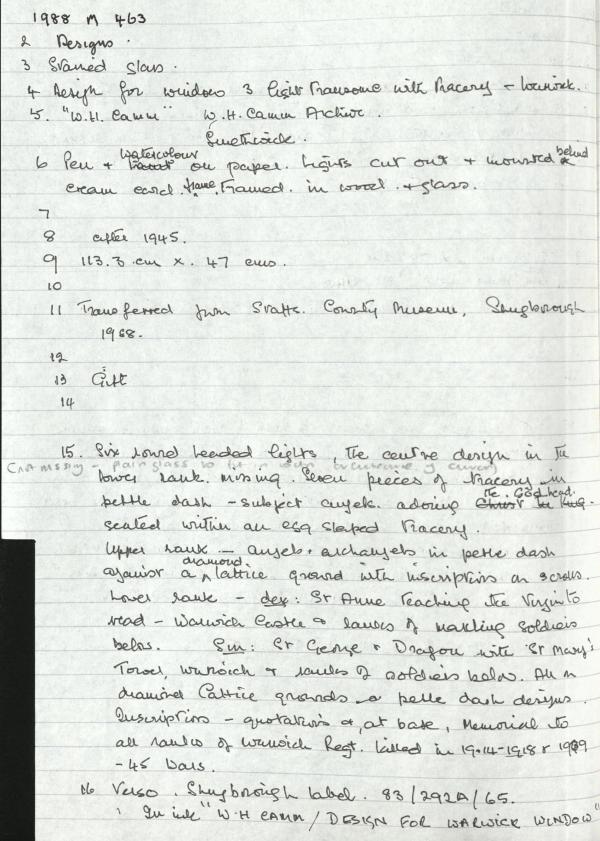 1988 M 463
2 Designs.
3 Stained Glass.
4 Design for window 3 light Transome with Tracery - Warwick.
5. "W.H. Camm" W.H. Camm Archive.
Smethwick.
6 Pen + watercolour on paper. Lights cut out + mounted behind
cream card. Framed. in wood. + glass.
7
8 after 1945.
9 113.3 cm x. 47 cms.
10
11 Transferred from Staffs. County Museum, Shugborough
1968.
12
13 Gift
14
15. Six round headed lights, the centre design in the
(not missing - plain glass to fit in with
lower rank. missing. Seven pieces of tracery in
petle dash - subject angels. adoring the Godhead.
seated within an egg shaped tracery.
Upper rank - angels + archangels in petle dash
against a diamond lattice ground with inscriptions on scrolls.
Lower rank - dex: St Anne Teaching the Virgin to
read - Warwick Castle & ranks of marking soldiers
below. Sin: St George & Dragon with St Mary's
Tower, Warwick + ranks of soldiers below. All on
diamond lattice grounds petle dash designs.
Inscription - quotations &, at base, Memorial to
all ranks of Warwick Regt. killed in 1914-1918 & 1939
-45 Wars.
16 Verso. Shugborough label. 83/292A/65.
In ink "W.H CAMM / DESIGN FOR WARWICK WINDOW"